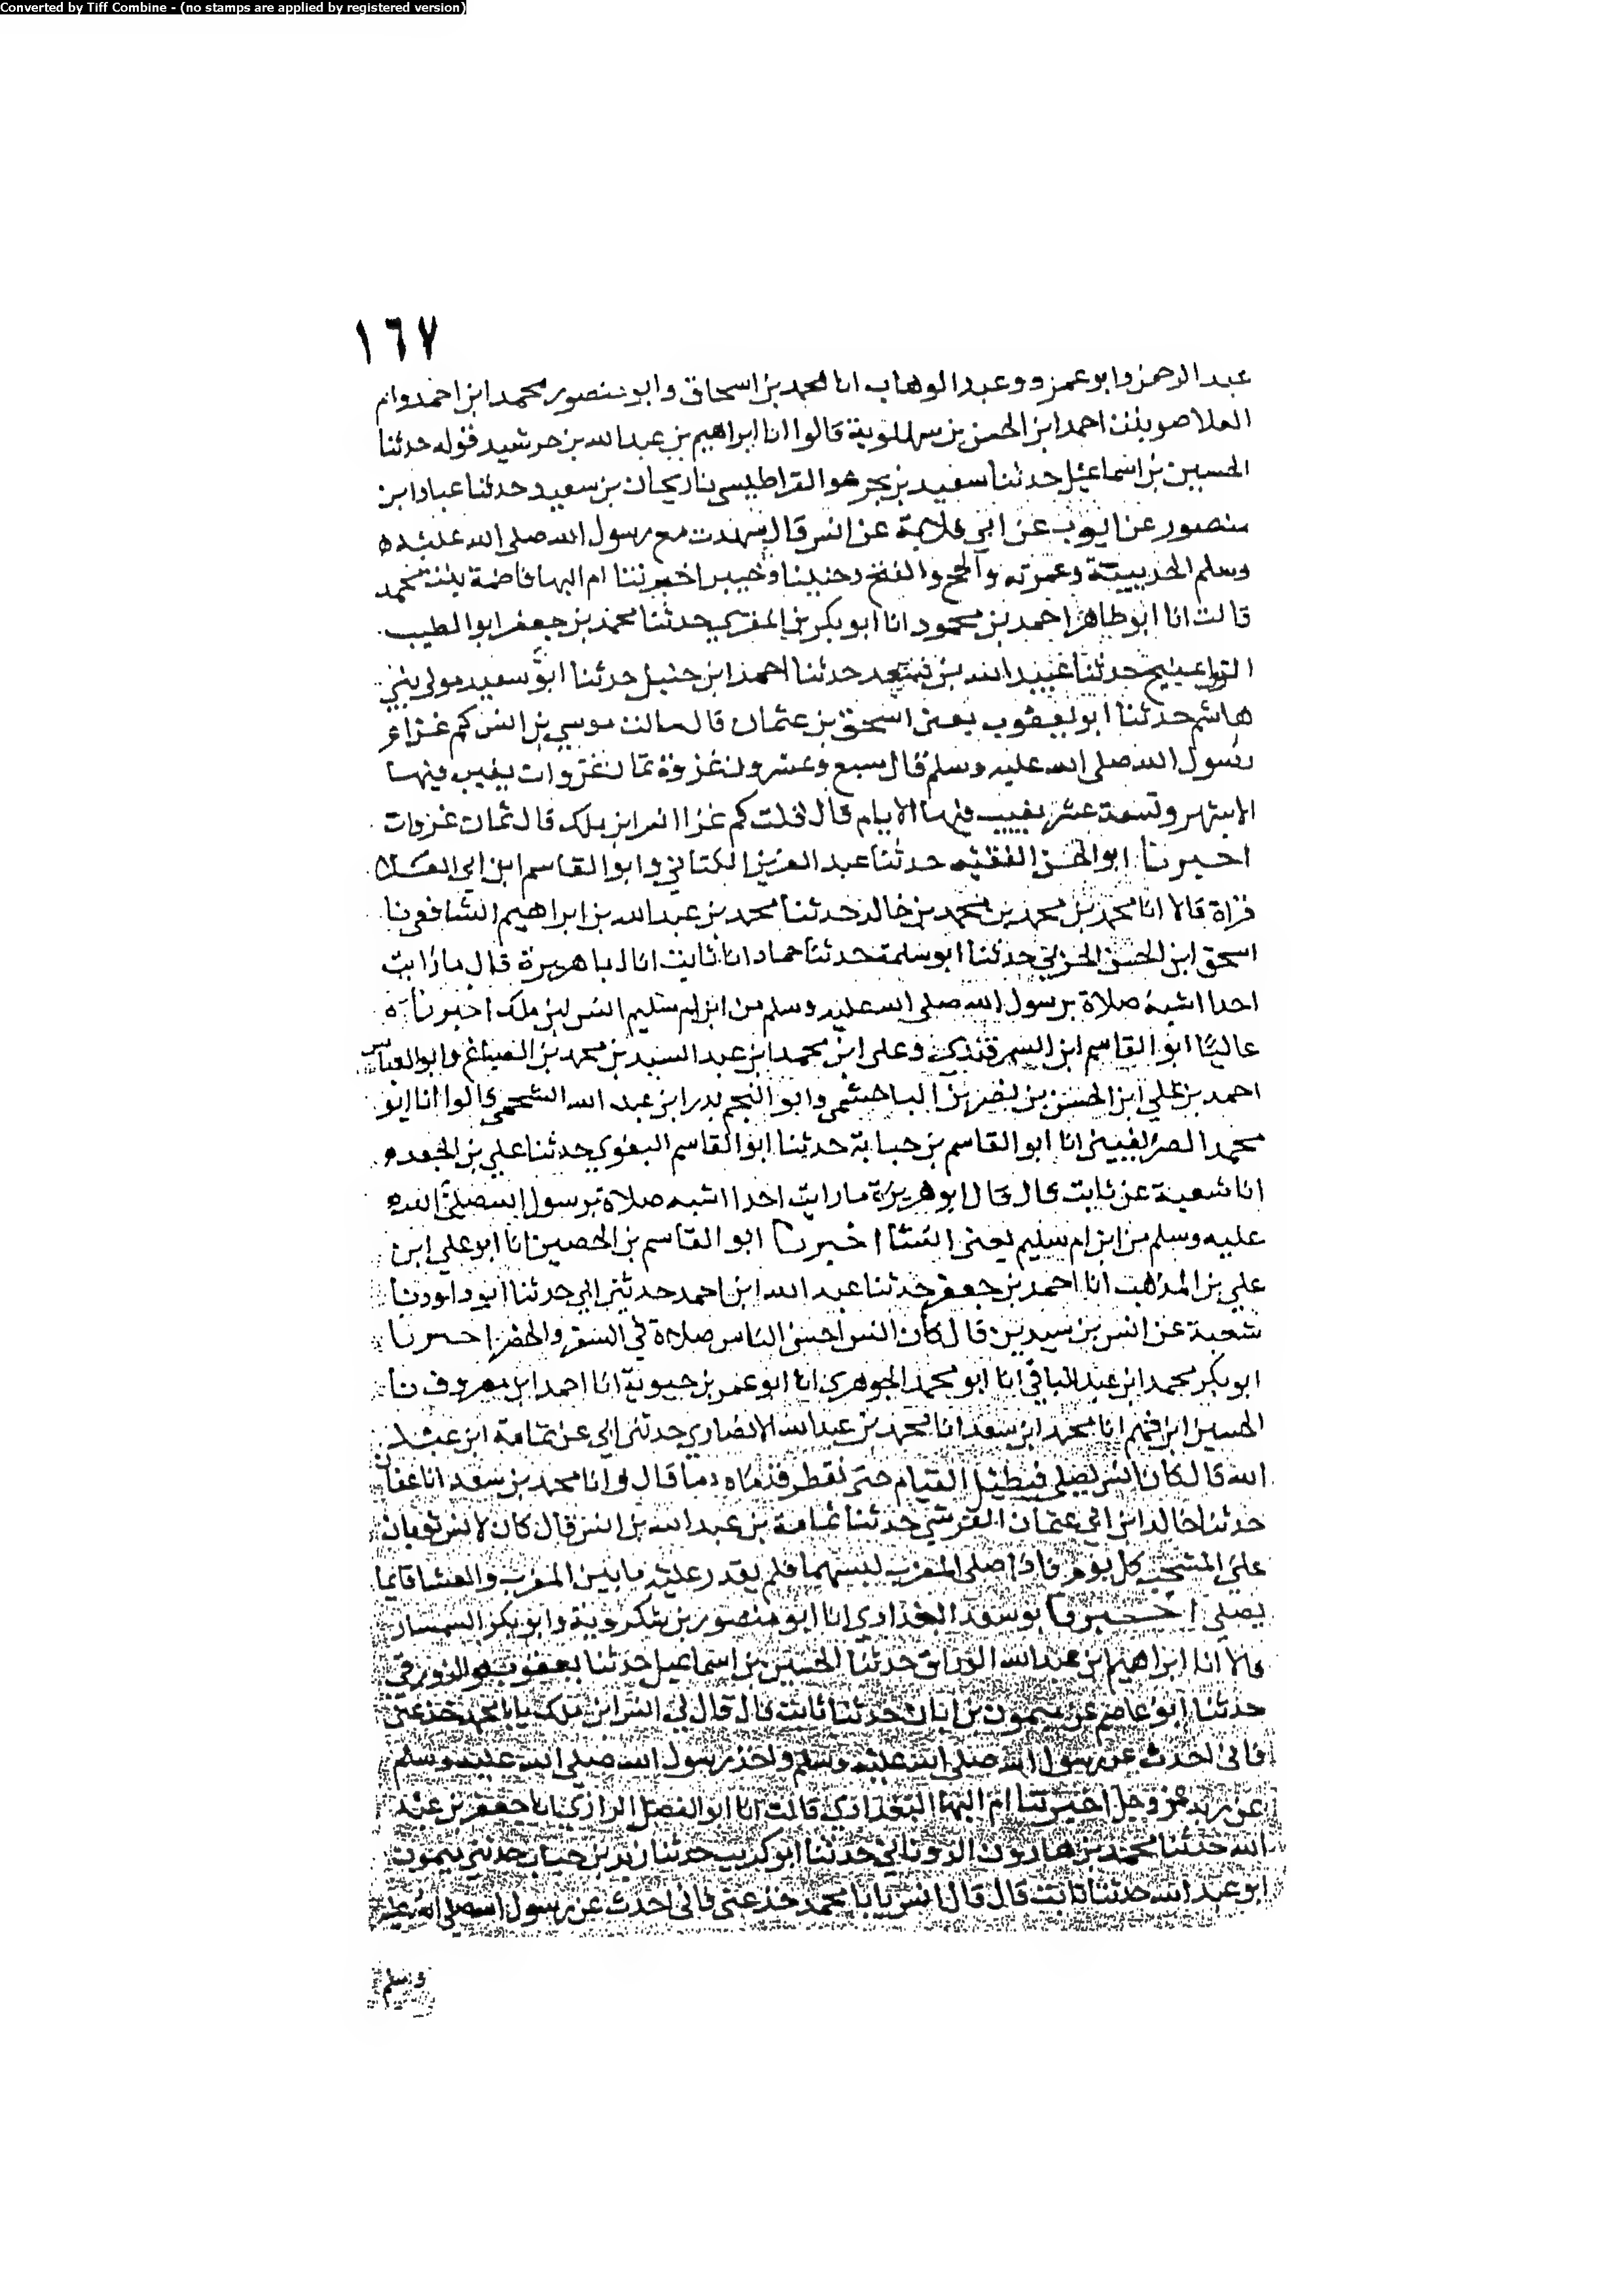 Converted by Tiff Combine - (no stamps are applied by registered version)
١٦٧
عبد الرحمن وابو عمرو وعبد الوهاب انا محمد بن اسحاق وابو منصور محمد ابن احمد وام
احمد ابن الحسن بن قالوا انا ابراهيم بن عبد الله بن خرشيد قوله حدثنا
الحسين بن اسماعيل حدثنا سعيد بن بحر هو القراطيسي نا ريحان بن سعيد حدثنا عباد ابن
منصور عن ايوب عن ابي قلابة عن انس قال شهدت مع رسول الله صلى الله عليه
وسلم الحديبية وعمرته والحج والفتح وحنينا وخيبر اخبرتنا ام البها فاطمة بنت محمد
قالت انا ابو طاهر احمد بن محمود انا ابو بكر بن المقري حدثنا محمد بن جعفر ابو الطيب
حدثنا عبيد الله بن سعد حدثنا احمد ابن حنبل حدثنا ابو سعيد مولى بني
هاشم حدثنا ابو يعقوب يعني اسحق بن عثمان قال سالت موسي بن انس كم غزا
رسول الله صلى الله عليه وسلم قال سبع وعشرون غزوة ثمان غزوات يغيب فيها
الاشهر وتسعة عشر يغيب فيها الايام قال فقلت كم غزا انس ابن ملك قال ثمان غزوات
اخبرنا ابو الحسن الفقيه حدثنا عبد العزيز الكتاني وابو القاسم ابن ابي العلا
قراة قالا انا محمد بن محمد بن محمد بن خالد حدثنا محمد بن عبد الله بن ابراهيم الشافعي نا
اسحق ابن الحسن الحربي حدثنا ابو سلمة حدثنا حماد انا ثابت ان ابا هريرة قال ما رايت
احدا اشبه صلاة برسول الله صلى الله عليه وسلم من ابن ام سليم انس بن ملك اخبرناه
عاليا ابو القاسم ابن السمرقندي وعلى ابن محمد ابن عبد السيد بن محمد بن الصباغ وابو العباس
احمد بن علي ابن الحسن بن نصر بن الباحمشي وابو النجم بدر ابن عبد الله الشيحي قالوا انا ابو
محمد الصريفيني انا ابو القاسم بن حبابة حدثنا ابو القاسم البغوي حدثنا علي بن الجعد
انا شعبة عن ثابت قال قال ابو هريرة ما رايت احدا اشبه صلاة برسول الله صلى الله
عليه وسلم من ابن ام سليم يعني انسا اخبرنا ابو القاسم بن الحصين انا ابو علي ابن
علي بن المذهب انا احمد بن جعفر حدثنا عبد الله ابن احمد حدثني ابي حدثنا ابو داود نا
شعبة عن انس بن سيرين قال كان انس احسن الناس صلاة في السفر والحضر اخبرنا
ابو بكر محمد ابن عبد الباقي انا ابو محمد الجوهري انا ابو عمر بن حيوية انا احمد ابن معروف نا
الحسين ابن فهم انا محمد ابن سعد انا محمد بن عبد الله الانصاري حدثني ابي عن ثمامة ابن عبد
الله قال كان انس يصلي فيطيل القيام حتى تقطر قدماه دما قال وانا محمد بن سعد انا عفان
حدثنا خالد ابن ابي عثمان القرشي حدثنا ثمامة بن عبد الله بن انس قال كان لانس ثوبان
على المشجب كل يوم فاذا صلى المغرب لبسهما فلم يقدر عليه ما بين المغرب والعشا قايما
يصلي اخبرنا ابو سعد البغدادي انا ابو منصور بن شكروية وابو بكر السمسار
قالا انا ابراهيم ابن عبد الله الوراق حدثنا الحسين بن اسماعيل حدثنا يعقوب الدورقي
حدثنا ابو عاصم عن ميمون بن ابان حدثنا ثابت قال قال لي انس ابن ملك يابا محمد خذ عني
فاني احدث عن رسول الله صلى الله عليه وسلم واخذ رسول الله صلى الله عليه وسلم
عن ربه عز وجل اخبرتنا ام البها البغدادي قالت انا ابو الفضل الرازي انا جعفر بن عبد
الله حدثنا محمد بن هارون الروياني حدثنا ابو كريب حدثنا زيد بن حباب حدثني ميمون
ابو عبد الله حدثنا ثابت قال قال انس يابا محمد خذ عني فاني احدث عن رسول الله صلى الله عليه
وسلم